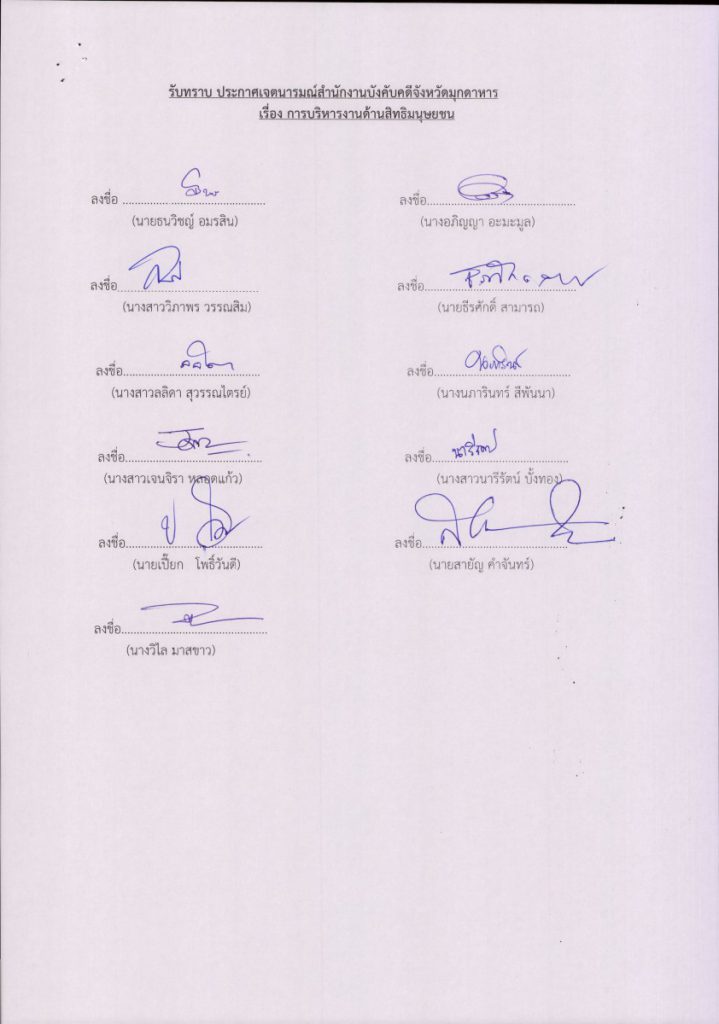 รับทราบ ประกาศเจตนารมณ์สำนักงานบังคับคดีจังหวัดมุกดาหาร
เรื่อง การบริหารงานด้านสิทธิมนุษยชน
ลงชื่อ ........................................ ลงชื่อ........................................
(นายธนวิชญ์ อมรสิน) (นางอภิญญา อะมะมูล)
ลงชื่อ........................................ ลงชื่อ........................................
(นางสาววิภาพร วรรณสิม) (นายธีรศักดิ์ สามารถ)
ลงชื่อ........................................ ลงชื่อ........................................
(นางสาวลลิดา สุวรรณไตรย์) (นางนภารินทร์ สีพันนา)
ลงชื่อ........................................ ลงชื่อ นารีรัตน์
(นางสาวเจนจิรา หลอดแก้ว) (นางสาวนารีรัตน์ บั้งทอง)
ลงชื่อ........................................ ลงชื่อ........................................
(นายเปี๊ยก โพธิ์วันดี) (นายสายัญ คำจันทร์)
ลงชื่อ........................................
(นางวิไล มาสขาว)